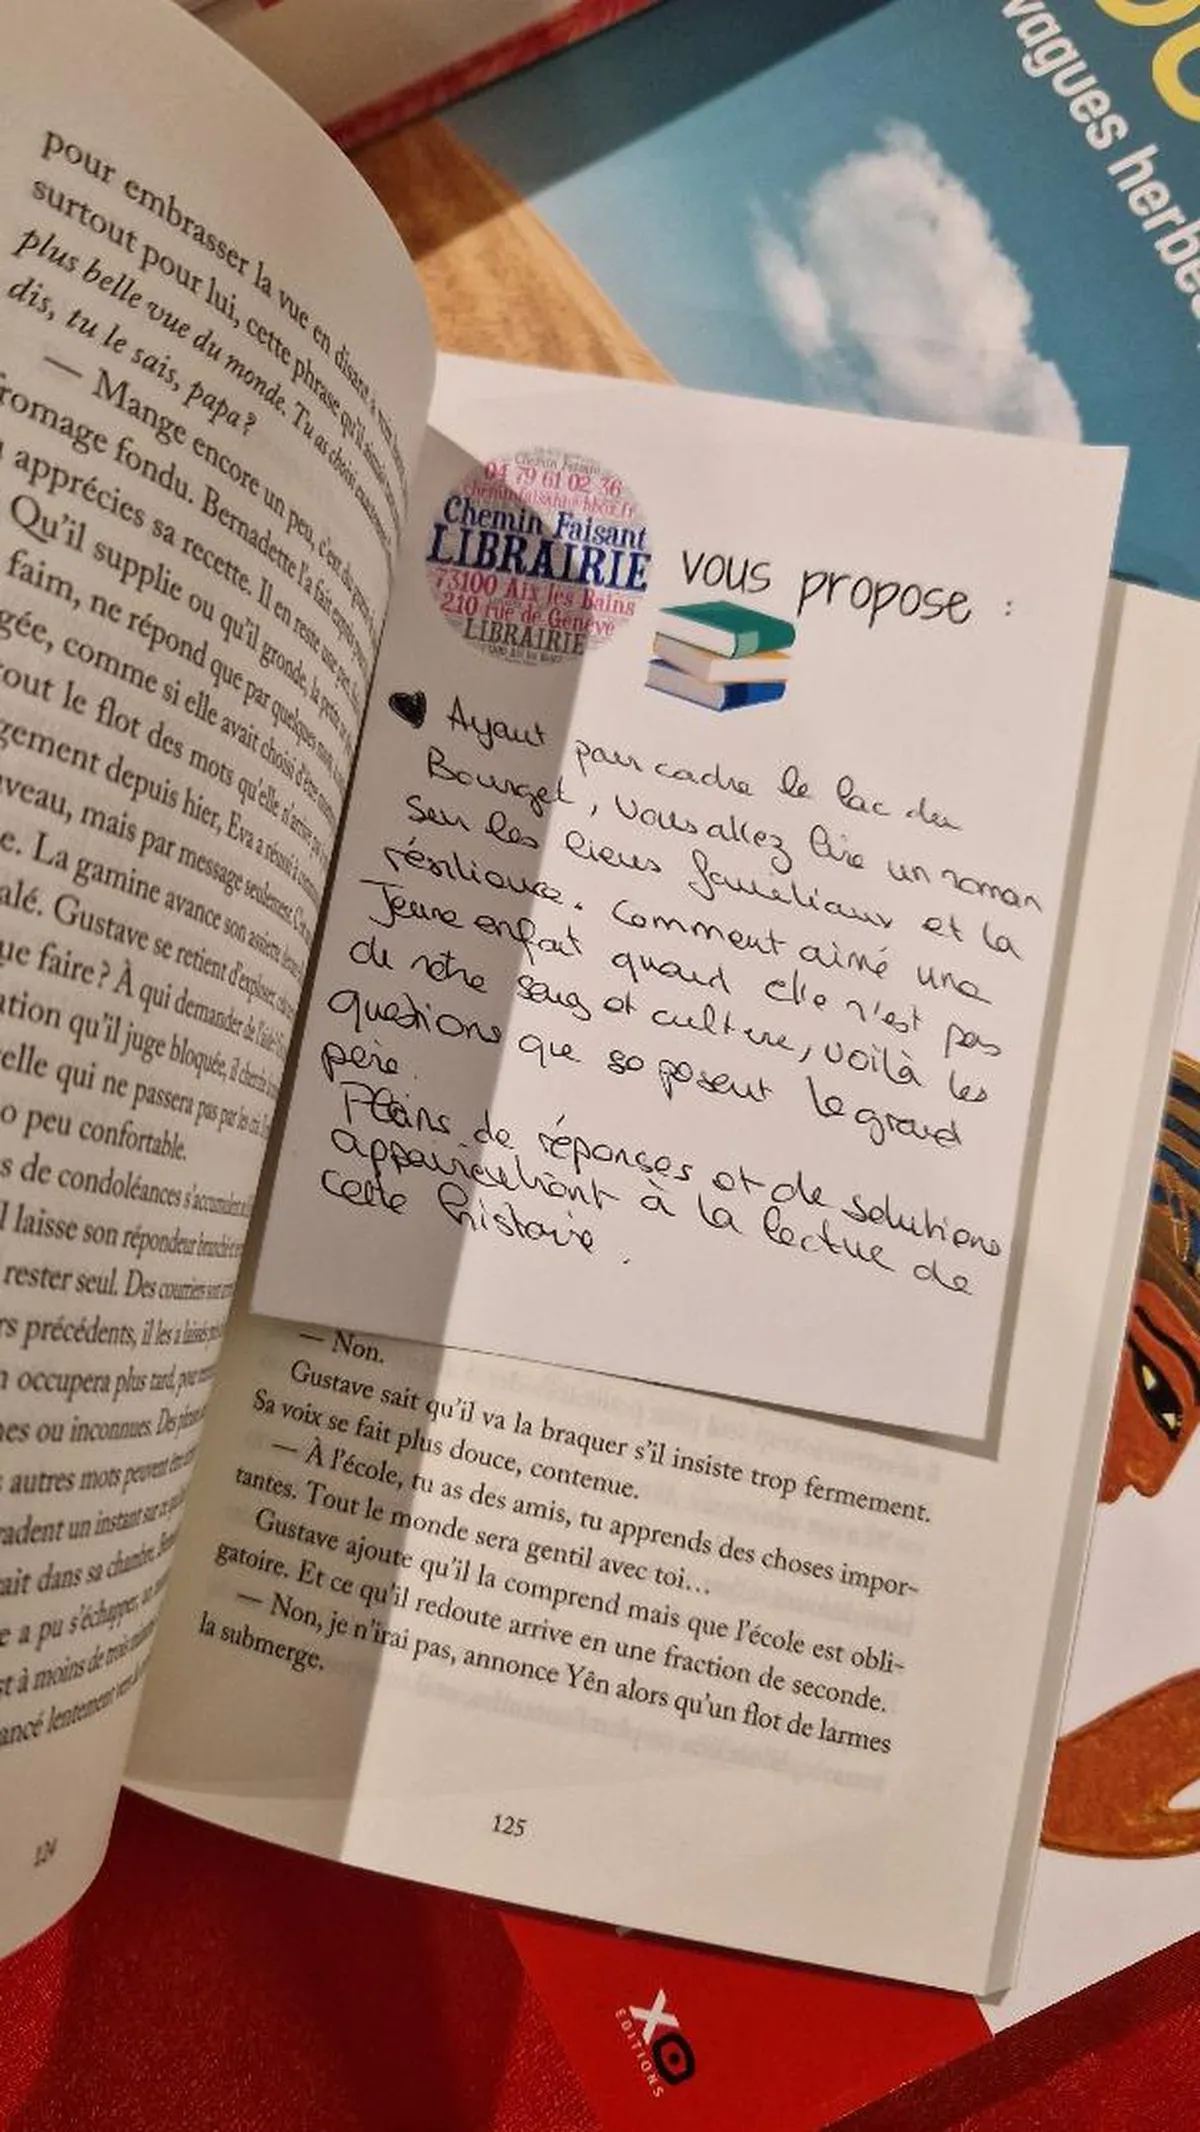 pour embrasser la vue en disant à
surtout pour lui, cette phrase qu'il aimait
plus belle vue du monde. Tu as choisi
dis, tu le sais, papa ?
— Mange encore un peu, c'est du
romage fondu. Bernadette l'a fait
apprécies sa recette. Il en reste une part.
Qu'il supplie ou qu'il gronde, la petite
faim, ne répond que par quelques
gée, comme si elle avait choisi d'être
tout le flot des mots qu'elle n'arrive
gement depuis hier, Eva a réussi à
veau, mais par message seulement.
e. La gamine avance son assiette
alé. Gustave se retient d'exploser,
ue faire ? À qui demander de l'aide
ation qu'il juge bloquée, il cherche
elle qui ne passera pas par les cris.
o peu confortable.
s de condoléances s'accumulent
l laisse son répondeur branché
rester seul. Des courriers sont
rs précédents, il les a laissés
n occupera plus tard, pour
nes ou inconnues. Des
autres mots peuvent être
radent un instant sur ce
ait dans sa chambre.
e a pu s'échapper, au
st à moins de trois
ancé lentement vers
124
Chemin Faisant
04 79 61 02 36
cheminfaisant@bbox.fr
Chemin Faisant
LIBRAIRIE
73100 Aix les Bains
210 rue de Genève
LIBRAIRIE
vous propose :
♥ Ayant pour cadre le lac du
Bourget, vous allez lire un roman
sur les liens familiaux et la
résilience. Comment aimé une
Jeune enfant quand elle n'est pas
de notre sang et culture, voilà les
questions que se posent le grand
père.
Pleins de réponses et de solutions
apparaitront à la lecture de
cette histoire.
— Non.
Gustave sait qu'il va la braquer s'il insiste trop fermement.
Sa voix se fait plus douce, contenue.
— À l'école, tu as des amis, tu apprends des choses impor-
tantes. Tout le monde sera gentil avec toi...
Gustave ajoute qu'il la comprend mais que l'école est obli-
gatoire. Et ce qu'il redoute arrive en une fraction de seconde.
— Non, je n'irai pas, annonce Yên alors qu'un flot de larmes
la submerge.
125
vagues herbe
XO
EDITIONS